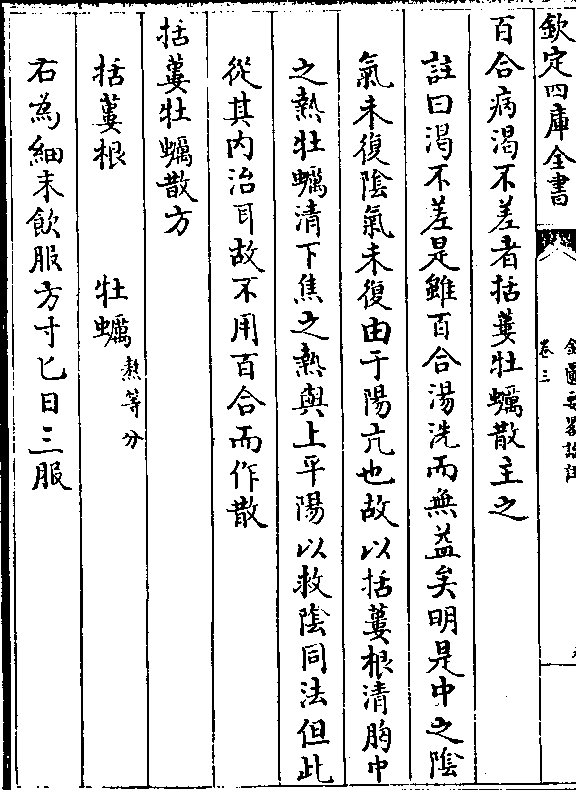 欽定四庫全書
卷三
百合病渴不差者括蔞牡蠣散主之
註曰渴不差是雖百合湯洗而無益矣明是中之陰
氣未復陰氣未復由于陽亢也故以括蔞根清胸中
之熱牡蠣清下焦之熱與上平陽以救陰同法但此
從其内治耳故不用百合而作散
括蔞牡蠣散方
括蔞根　牡蠣熬等分
右為細末飲服方寸匕日三服